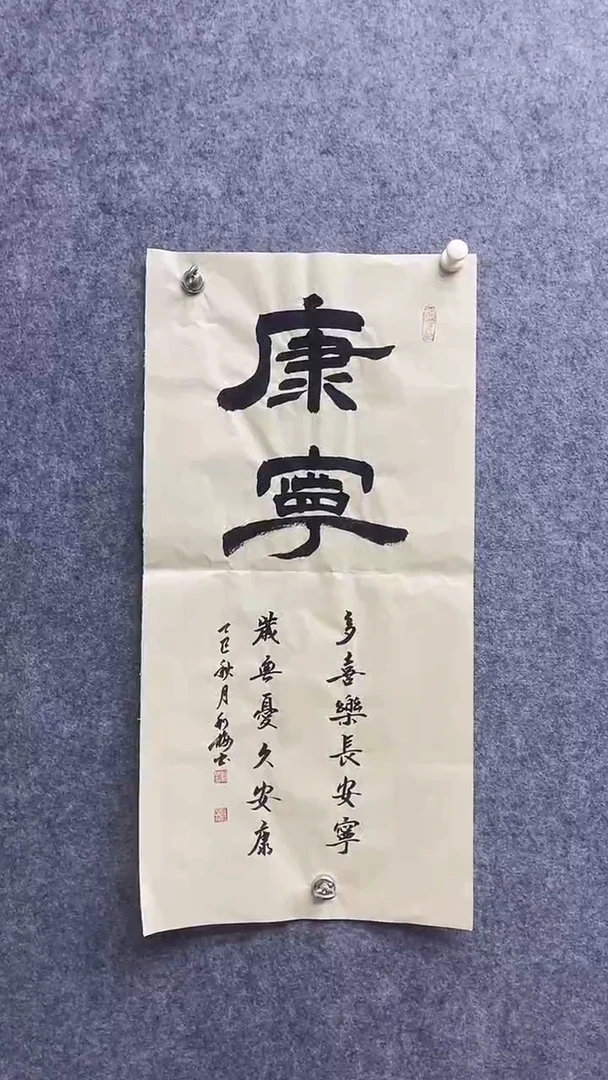 康寧
多喜樂長安寧
歲無憂久安康
乙巳秋月